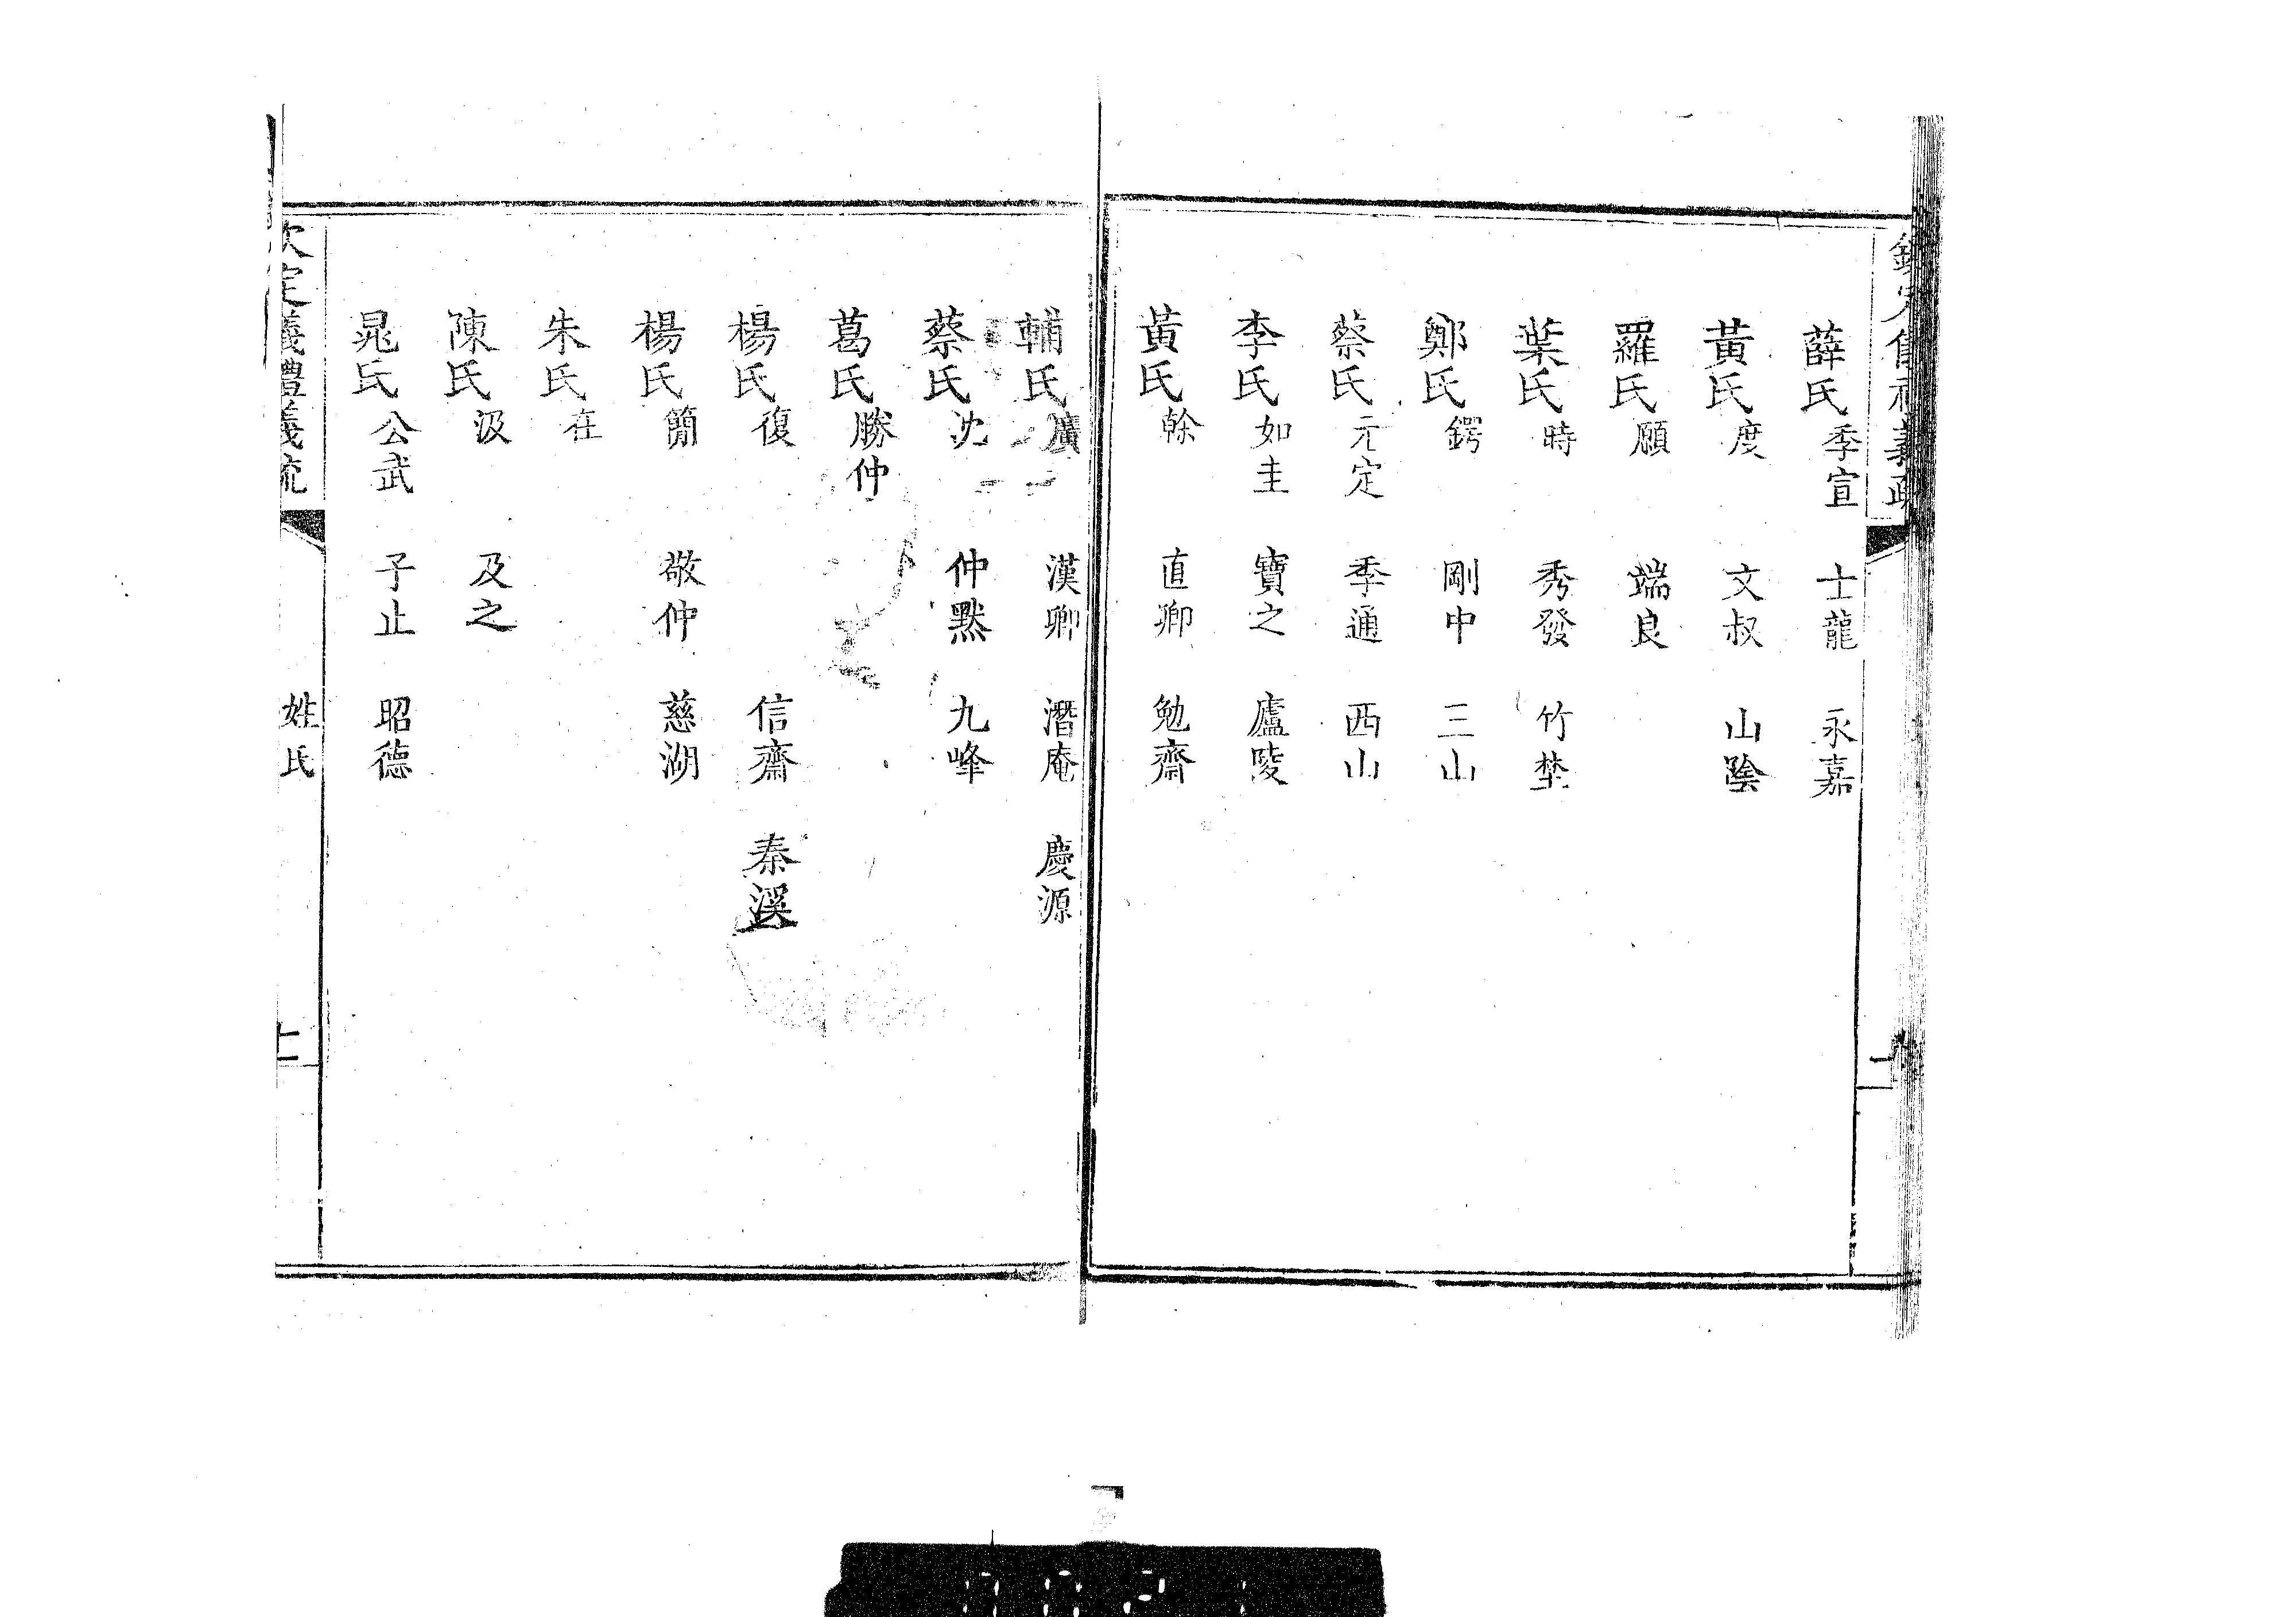 薛氏季宣 士龍 永嘉
黃氏度 文叔 山陰
羅氏願 端良
葉氏時 秀發 竹埜
鄭氏鍔 剛中 三山
蔡氏元定 季通 西山
李氏如圭 寶之 廬陵
黃氏榦 直卿 勉齋
輔氏廣 漢卿 潛庵 慶源
蔡氏沈 仲默 九峰
葛氏勝仲
楊氏復 信齋 秦溪
楊氏簡 敬仲 慈湖
朱氏在
陳氏汲 及之
晁氏公武 子止 昭德
欽定義禮義疏 姓氏